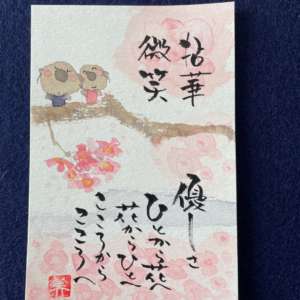 拈華
微笑
優しさ
ひとから花へ
花からひとへ
こころから
こころへ